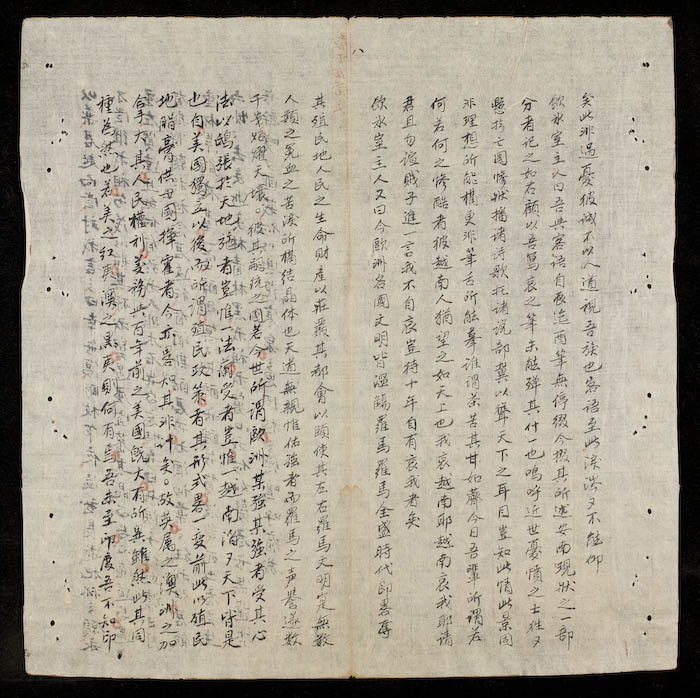 矣此非過憂彼誠不以人道視吾族也客語至此淚潸々不能仰
飲冰室主人曰吾與客語自辰迨酉筆無停綴今撮其所述安南現狀之一部
分者記之如右顧以吾篤哀之筆未能殫其什一也嗚呼近世憂憤之士往々
懸擬亡國慘狀播諸詩歌托諸說部冀以聳天下之耳目豈知此情此景固
非理想所能構更非筆舌所能摹誰謂荼苦其甘如薺今日吾輩所謂若
何若何之慘酷者彼越南人猶望之如天上也我哀越南耶越南哀我耶請
君且勿諠賤子進一言我不自哀豈待十年自有哀我者矣
飲冰室主人又曰今歐洲各國文明皆濫觴羅馬羅馬全盛時代即善辱
其殖民地人民之生命財産以莊嚴其都會以頤使其左右羅馬文明寔無數
人類之冤血之苦淚所構結晶体也天道無親惟佑強者而羅馬之声譽遂數
千載焜燿天壤彼其嗣統之國若今世所謂歐洲某強某強者受其心
法以鴟張於天地強者豈惟一法蘭受者豈惟一越南滔々天下皆是
也自美國獨立以後所謂殖民政策者其形式畧一変前此以殖民
地脂膏供母國揮霍者今亦大其非矣故英屬之澳洲之加
拿大其人民權利義務與百年前之美國既大有所異雖然此其同
種爲然也若美之紅夷澳之黑夷則何有焉吾未至印度吾不知印